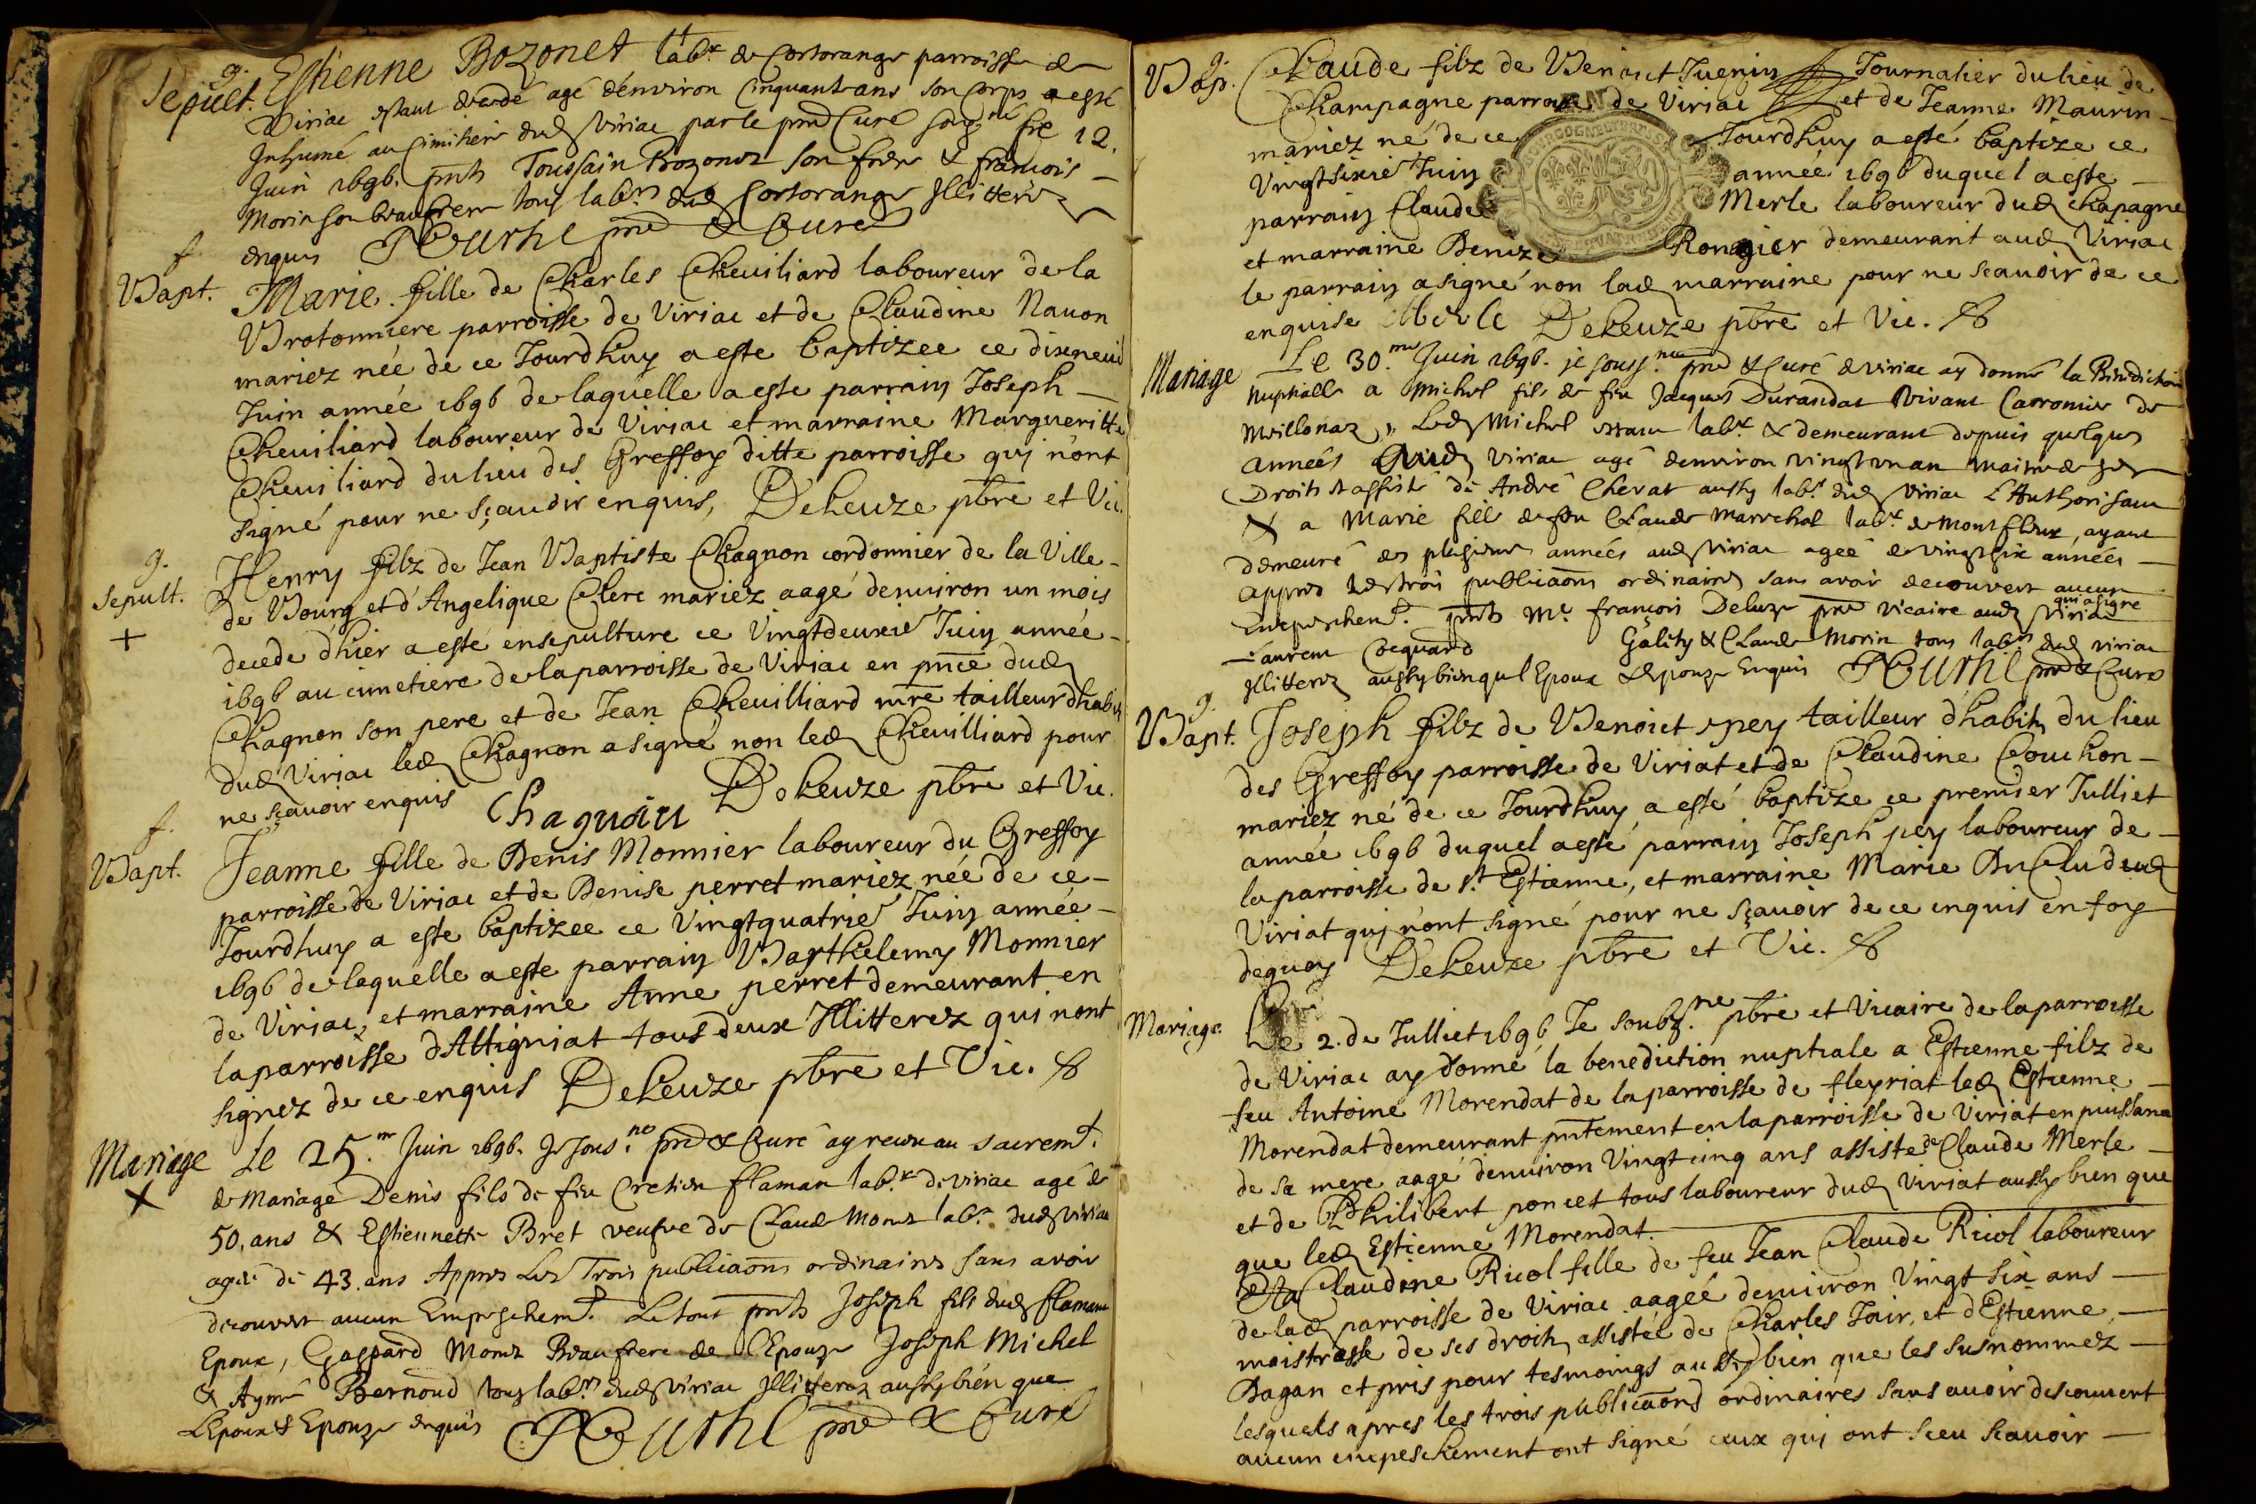 g.
Sepult. Estienne Bozonet lab.r de Cortorange parroisse de
Viriac estant decedé agé d'environ Cinquante ans son Corps a esté
Inhumé au Cimitiere dud Viriac par le pnd Curé soug.né ce 12.
Juin 1696. pnts Toussain Bozonet son frere & francois
Morin son beaufrere tous lab.rs dud Cortorange Illitterez
enquis pnd & Curé
f.
Bapt. Marie fille de Charles Cheuiliard laboureur de la
Brotonniere parroisse de Viriac et de Claudine Nauon
mariez née de ce Jourdhuy a este baptizee ce dixneuie
Juin année 1696 de laquelle a este parrain Joseph
Cheuiliard laboureur de Viriac et marraine Margueritte
Cheuiliard du lieu des Greffoy ditte parroisse qui n'ont
signé pour ne sçauoir enquis, Deheuze pbre et Vic.
g.
Sepult. Henry filz de Jean Baptiste Chagnon cordonnier de la Ville
+ de Bourg et d'Angelique Clerc mariez aagé denuiron un mois
decede d'hier a esté ensepulturé ce Vingtdeuxie Juin année
1696 au cimetiere de la parroisse de Viriac en pnce dud
Chagnon son pere et de Jean Cheuilliard mre tailleur dhabits
dud Viriac led Chagnon a signé non led Cheuilliard pour
ne sçauoir enquis Chagnon Deheuze pbre et Vic.
f.
Bapt. Jeanne fille de Denis Monnier laboureur du Greffoy
parroisse de Viriac et de Denise perret mariez née de ce
Jourdhuy a este baptizee ce Vingtquatrie Juin année
1696 de laquelle a este parrain Barthelemy Monnier
de Viriac, et marraine Anne perret demeurant en
la parroisse dAttigniat tous deux Illitterez qui nont
signez de ce enquis Deheuze pbre et Vic.
Mariage Le 25.me Juin 1696. Je sous.né & Curé ay receu au sacrem.t
X de Mariage Denis fils de feu Cretien flaman lab.r de Viriac agé de
50. ans & Estiennette Bret veufve de Claude Monet lab.r dud Viriac
agée de 43. ans Appres Les Trois publicaons ordinaires sans avoir
decouvert aucun Empeschem.t Le tout pnts Joseph fils dud flaman
Epoux, Gaspard Monet Beaufrere de l'Epouze Joseph Michel
& Aymé Bernoud tous lab.rs dud Viriac Illitterez aussy bien que
L'Epoux & Epouze enquis & Curé
g.
Bap. Claude filz de Benoict Juenin Journalier du lieu de
Champagne parroisse de Viriac et de Jeanne Maurin
mariez né de ce Jourdhuy a esté baptize ce
Vingtsixie Juin année 1696 duquel a este
parrain Claude Merle laboureur dud Chapagne
et marraine Denize Rongier demeurant aud Viriac
le parrain a signé non lad marraine pour ne scauoir de ce
enquise Merle Deheuze pbre et Vic.
Mariage Le 30.me Juin 1696. je souss.né & Curé de Viriac ay donné la Benediction
Nuptialle a Michel fils de feu Jacques Durandat Vivant Carronier de
Meillonaz, Led Michel estant lab.r & demeurant depuis quelques
années aud Viriac agé denviron vingt un an maitre de ses
Droits assisté de André Chevat aussy lab.r dud Viriac L'Authorisant
& a Marie fille de feu Claude Marechal lab.r de Montfleur, ayant
demeuré des plusieurs années aud Viriac agée de vingt six années
Appres les trois publicaons ordinaires sans avoir decouvert aucun
Empeschem.t pnts Me. françois Deheuze vicaire aud Viriac qui a signé
Laurent Coquard Gality & Claude Morin tous lab.rs dud Viriac
Illitterez aussy bien que l'Epoux & Epouze Enquis & Curé
g.
Bapt. Joseph filz de Benoict pey tailleur d'habits du lieu
des Greffoy parroisse de Viriat et de Claudine Couchon
mariez né de ce Jourdhuy a esté baptize ce premier Julliet
année 1696 duquel a esté parrain Joseph pey laboureur de
la parroisse de St. Estienne, et marraine Marie DuClu dud
Viriat qui n'ont signé pour ne sçauoir de ce enquis en foy
dequoy Deheuze pbre et Vic.
Mariage. Le 2. de Julliet 1696 Je soubz.né pbre et Vicaire de la parroisse
de Viriac ay donné la benediction nuptiale a Estienne filz de
feu Antoine Morendat de la parroisse de fleyriat led Estienne
Morendat demeurant pntement en la parroisse de Viriat en puissance
de sa mere aagé denuiron Vingtcinq ans assisté de Claude Merle
et de Philibert poncet tous laboureur dud Viriat aussy bien que
que led Estienne Morendat.
Et a Claudine Ricol fille de feu Jean Claude Ricol laboureur
de lad parroisse de Viriac aageé denuiron Vingt six ans
maistresse de ses droits assistée de Charles Jair, et d'Estienne
Dagan et pris pour tesmoings aussy bien que les susnommez
lesquels apres les trois publicaons ordinaires sans auoir descouuert
aucun empeschement ont signé ceux qui ont sceu scauoir